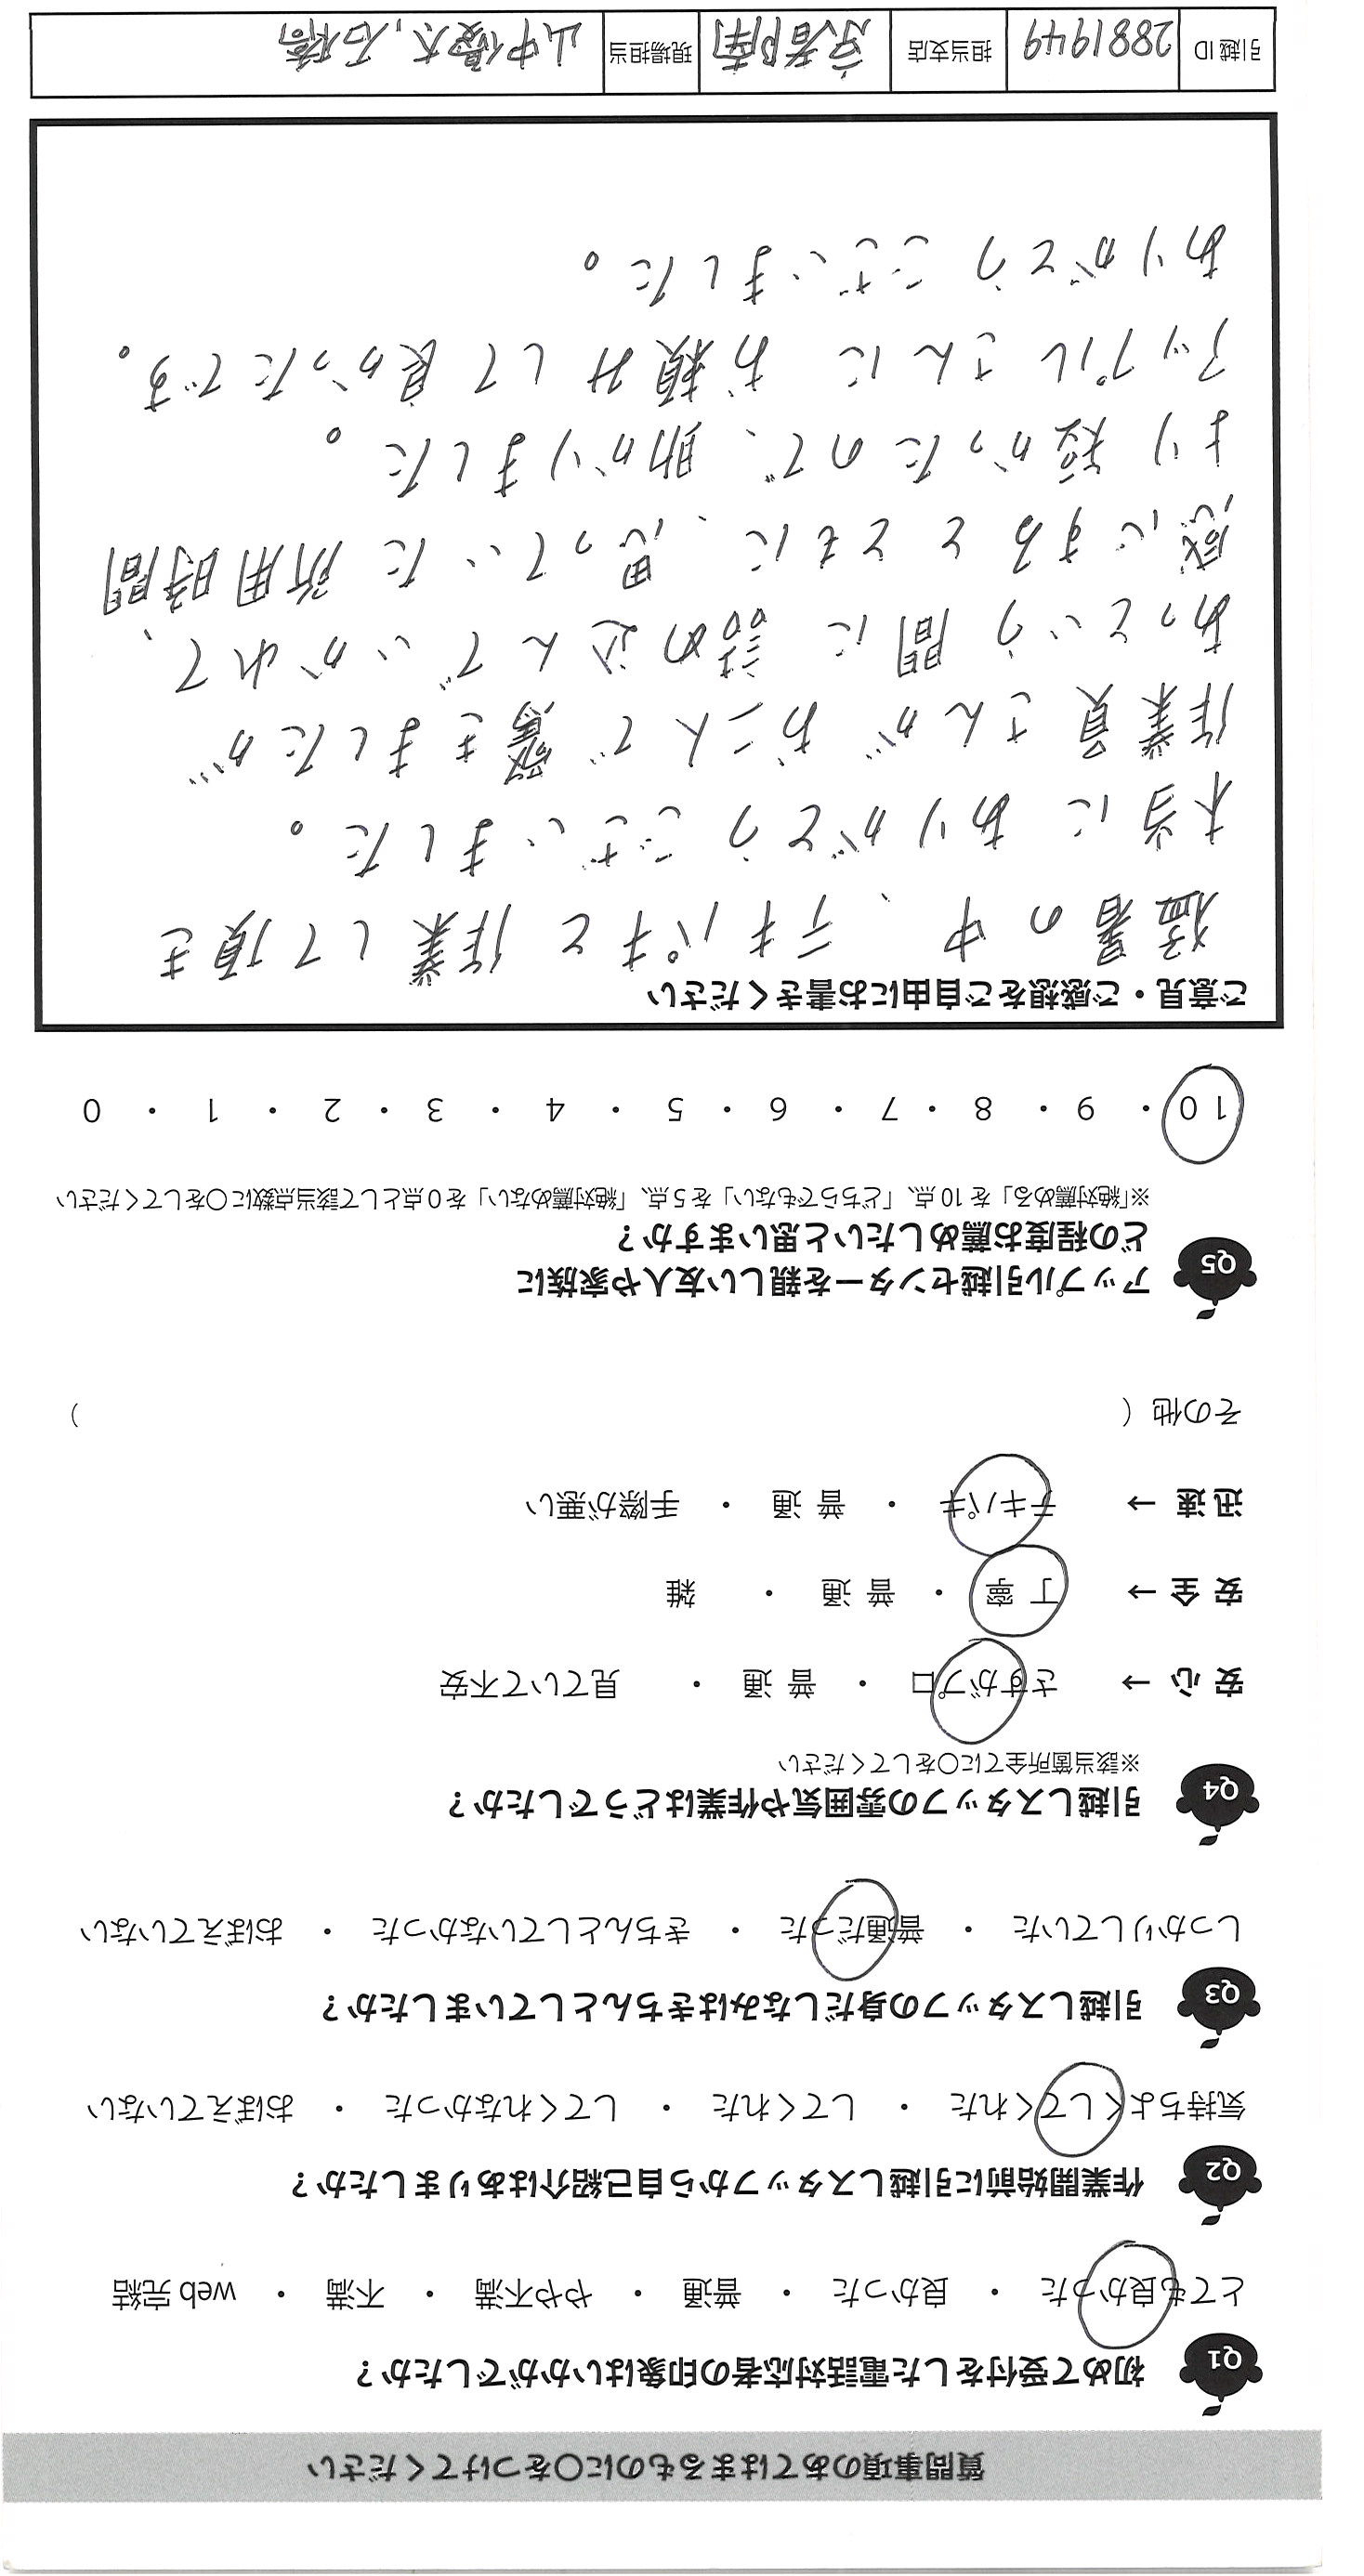 質問事項のあてはまるものに〇をつけてください
Q1 初めて受付をした電話対応者の印象はいかがでしたか？
とても良かった ・ 良かった ・ 普通 ・ やや不満 ・ 不満 ・ web 完結
Q2 作業開始前に引越しスタッフから自己紹介はありましたか？
気持ちよくしてくれた ・ してくれた ・ してくれなかった ・ おぼえていない
Q3 引越しスタッフの身だしなみはきちんとしていましたか？
しっかりしていた ・ 普通だった ・ きちんとしていなかった ・ おぼえていない
Q4 引越しスタッフの雰囲気や作業はどうでしたか？
※該当箇所全てに〇をしてください
安 心 → さすがプロ ・ 普 通 ・ 見ていて不安
安 全 → 丁 寧 ・ 普 通 ・ 雑
迅 速 → テキパキ ・ 普 通 ・ 手際が悪い
その他（ ）
Q5 アップル引越センターを親しい友人や家族に
どの程度お薦めしたいと思いますか？
※「絶対薦める」を 10 点、「どちらでもない」を 5 点、「絶対薦めない」を 0 点として該当点数に〇をしてください
10 ・ 9 ・ 8 ・ 7 ・ 6 ・ 5 ・ 4 ・ 3 ・ 2 ・ 1 ・ 0
ご意見・ご感想をご自由にお書きください
猛暑の中、テキパキと作業して頂き
本当にありがとうございました。
作業員さんがお二人で驚きましたが…
あっという間に詰め込んでいかれて、
感心するとともに、思っていた所用時間
より短かったので、助かりました。
アップルさんにお頼みして良かったです。
ありがとうございました。
引越 ID 2881949 担当支店 京都南 現場担当 山中優太, 石橋